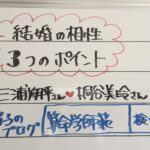 結婚の相性
3つのポイント
三浦翔平さん♥桐谷美玲さん
ブログ 算命学師範